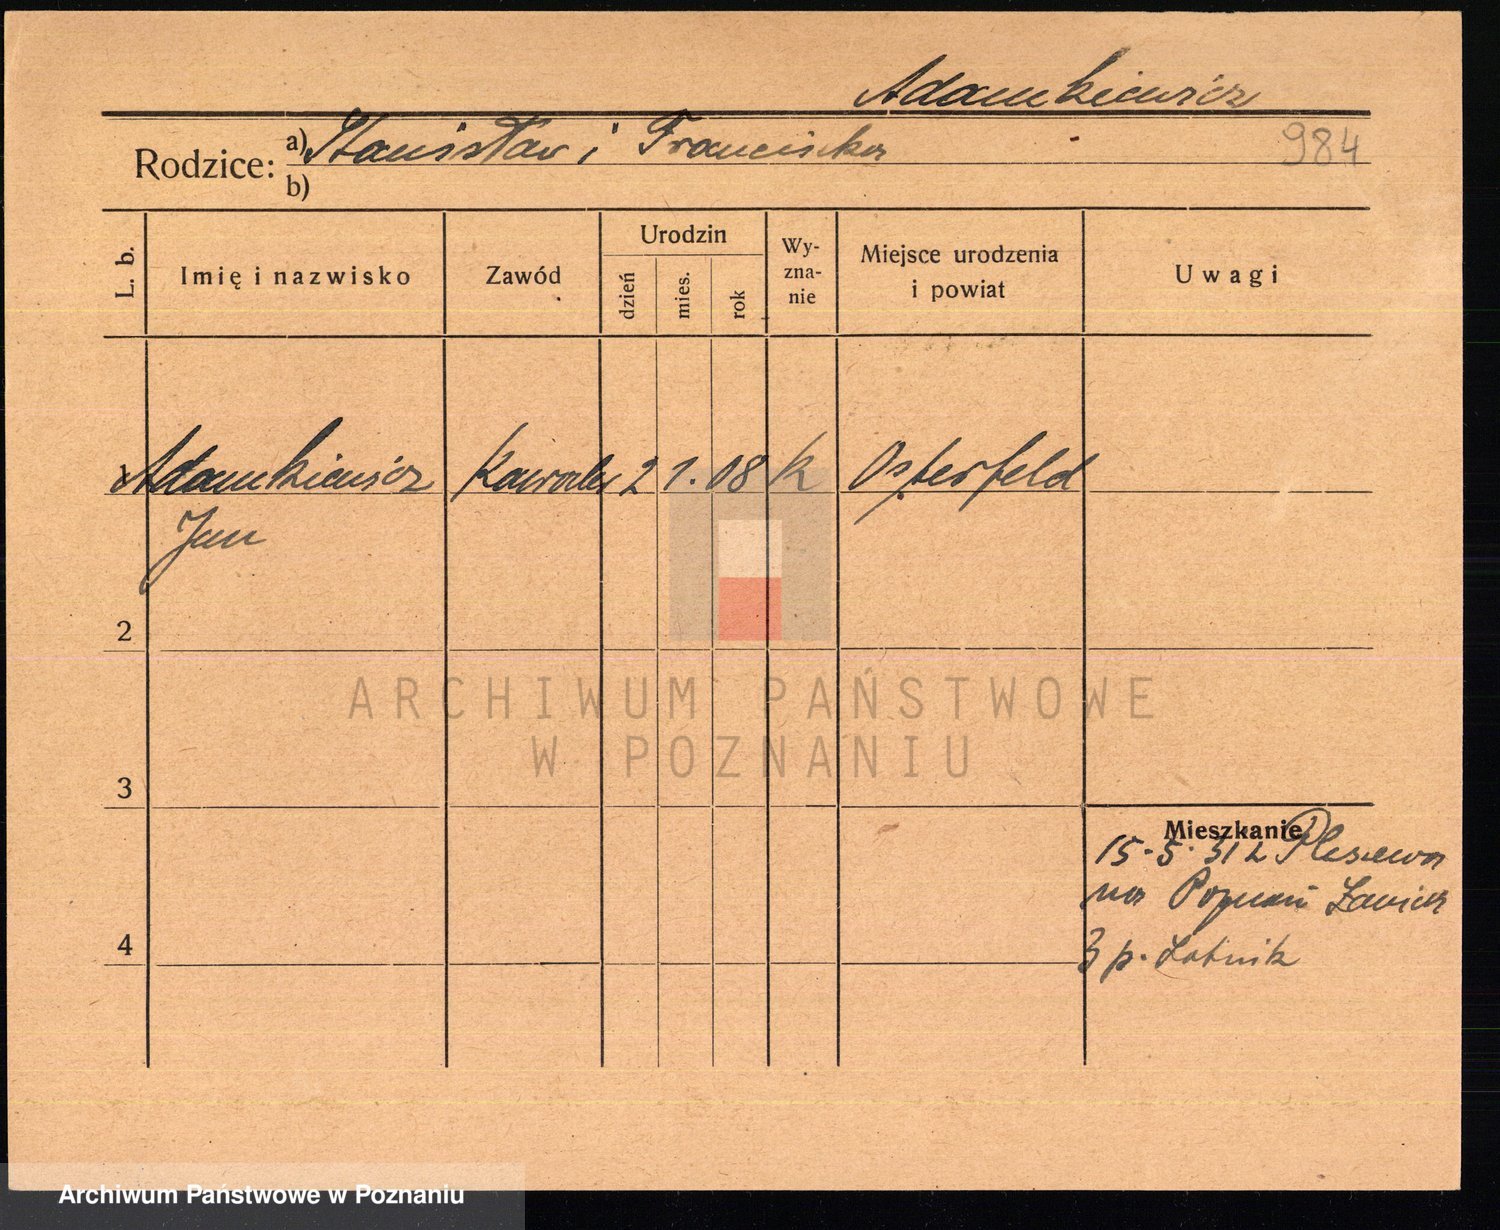 Adamkiewicz
Rodzice: a) Stanisław i Franciszka
984
b)
L. b.
Imię i nazwisko
Zawód
Urodzin
dzień
mies.
rok
Wy-
zna-
nie
Miejsce urodzenia
i powiat
Uwagi
1 Adamkiewicz Kawaler 2 1. 08 K Osterfeld
Jan
2
ARCHIWUM PAŃSTWOWE
W POZNANIU
3
Mieszkanie
15-5-31 z Pleszewa
na Poznań Ławica
3 p. Lotnik
4
Archiwum Państwowe w Poznaniu